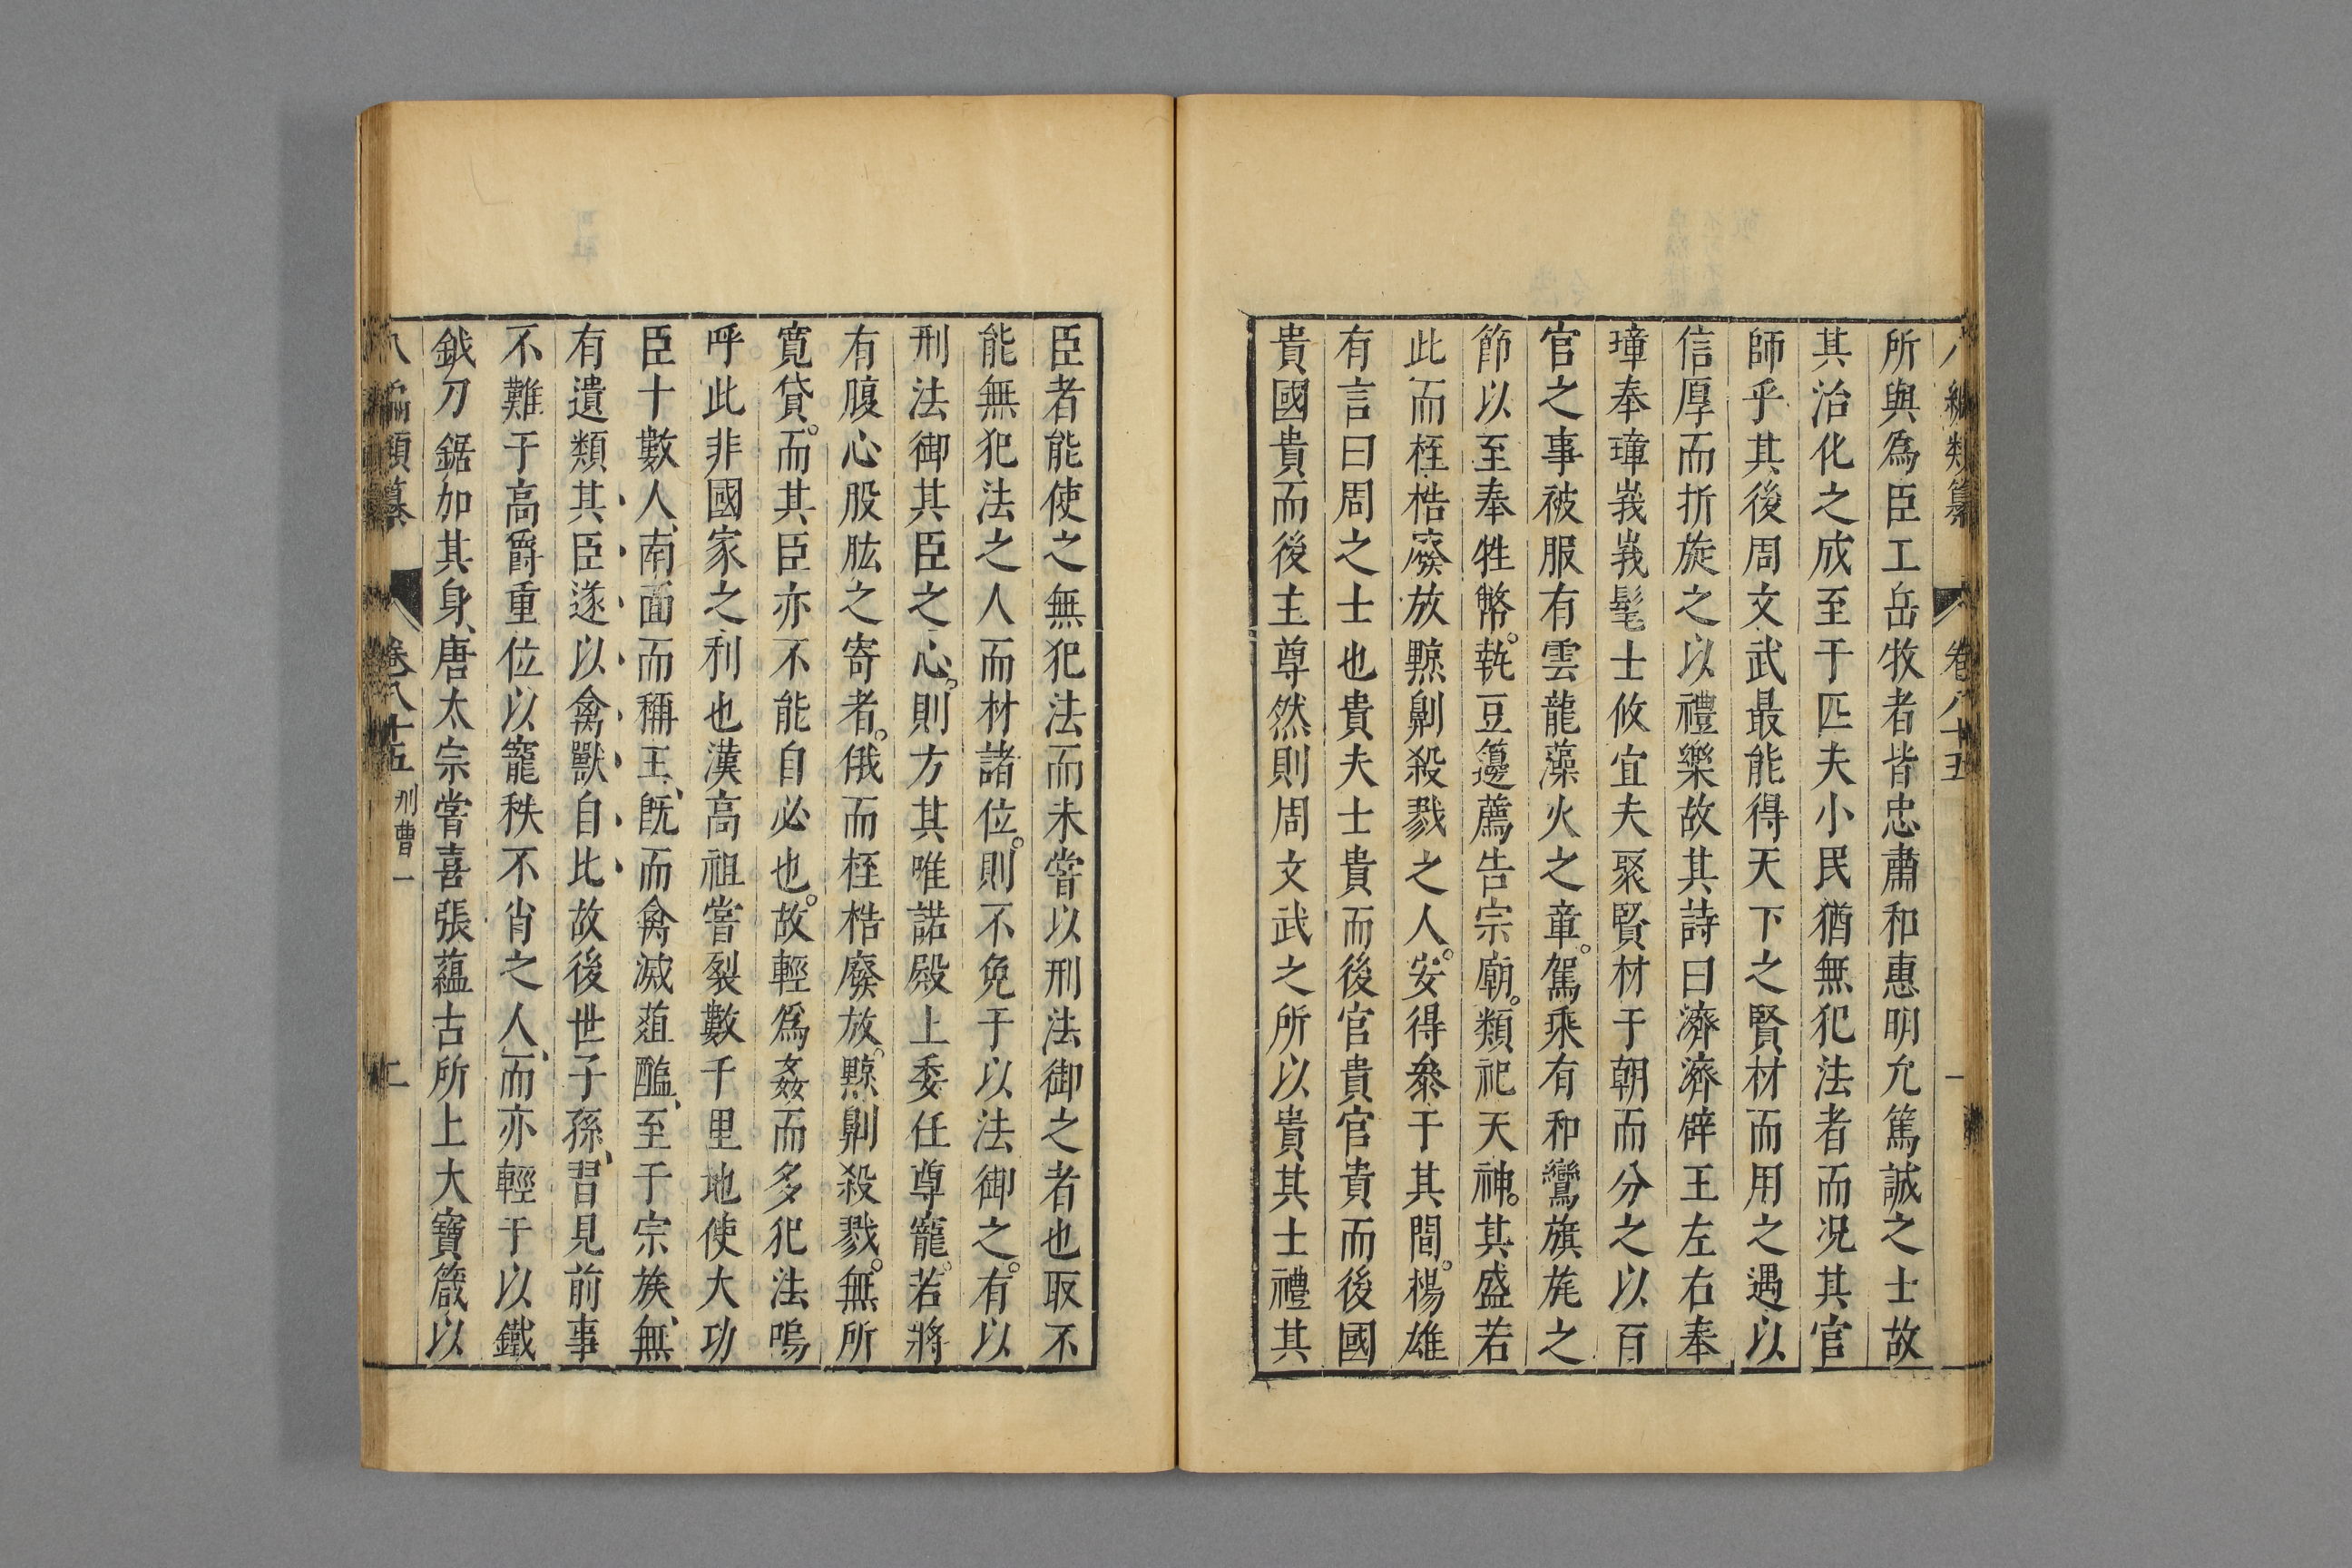 八編類纂 卷八十五 一
所與爲臣工岳牧者皆忠肅和惠明允篤誠之士故
其治化之成至于匹夫小民猶無犯法者而况其官
師乎其後周文武最能得天下之賢材而用之遇以
信厚而折旋之以禮樂故其詩曰濟濟辟王左右奉
璋奉璋峩峩髦士攸宜夫聚賢材于朝而分之以百
官之事被服有雲龍藻火之章。駕乘有和鸞旗旄之
節以至奉牲幣。執豆籩薦告宗廟。類祀天神。其盛若
此而桎梏廢放黥劓殺戮之人。安得參于其間。楊雄
有言曰周之士也貴夫士貴而後官貴官貴而後國
貴國貴而後主尊然則周文武之所以貴其士禮其
臣者能使之無犯法而未嘗以刑法御之者也取不
能無犯法之人而材諸位。則不免于以法御之。有以
刑法御其臣之心。則方其唯諾殿上委任尊寵。若將
有腹心股肱之寄者。俄而桎梏廢放。黥劓殺戮。無所
寬貸。而其臣亦不能自必也。故輕爲姦而多犯法嗚
呼此非國家之利也漢高祖嘗裂數千里地使大功
臣十數人、南面而稱王、旣而禽滅葅醢、至于宗族、無
有遺類其臣遂以禽獸自比故後世子孫、習見前事
不難于高爵重位以寵秩不肖之人、而亦輕于以鐵
鉞刀鋸加其身、唐太宗嘗喜張蘊古所上大寶箴以
八編類纂 卷八十五 刑曹一 二